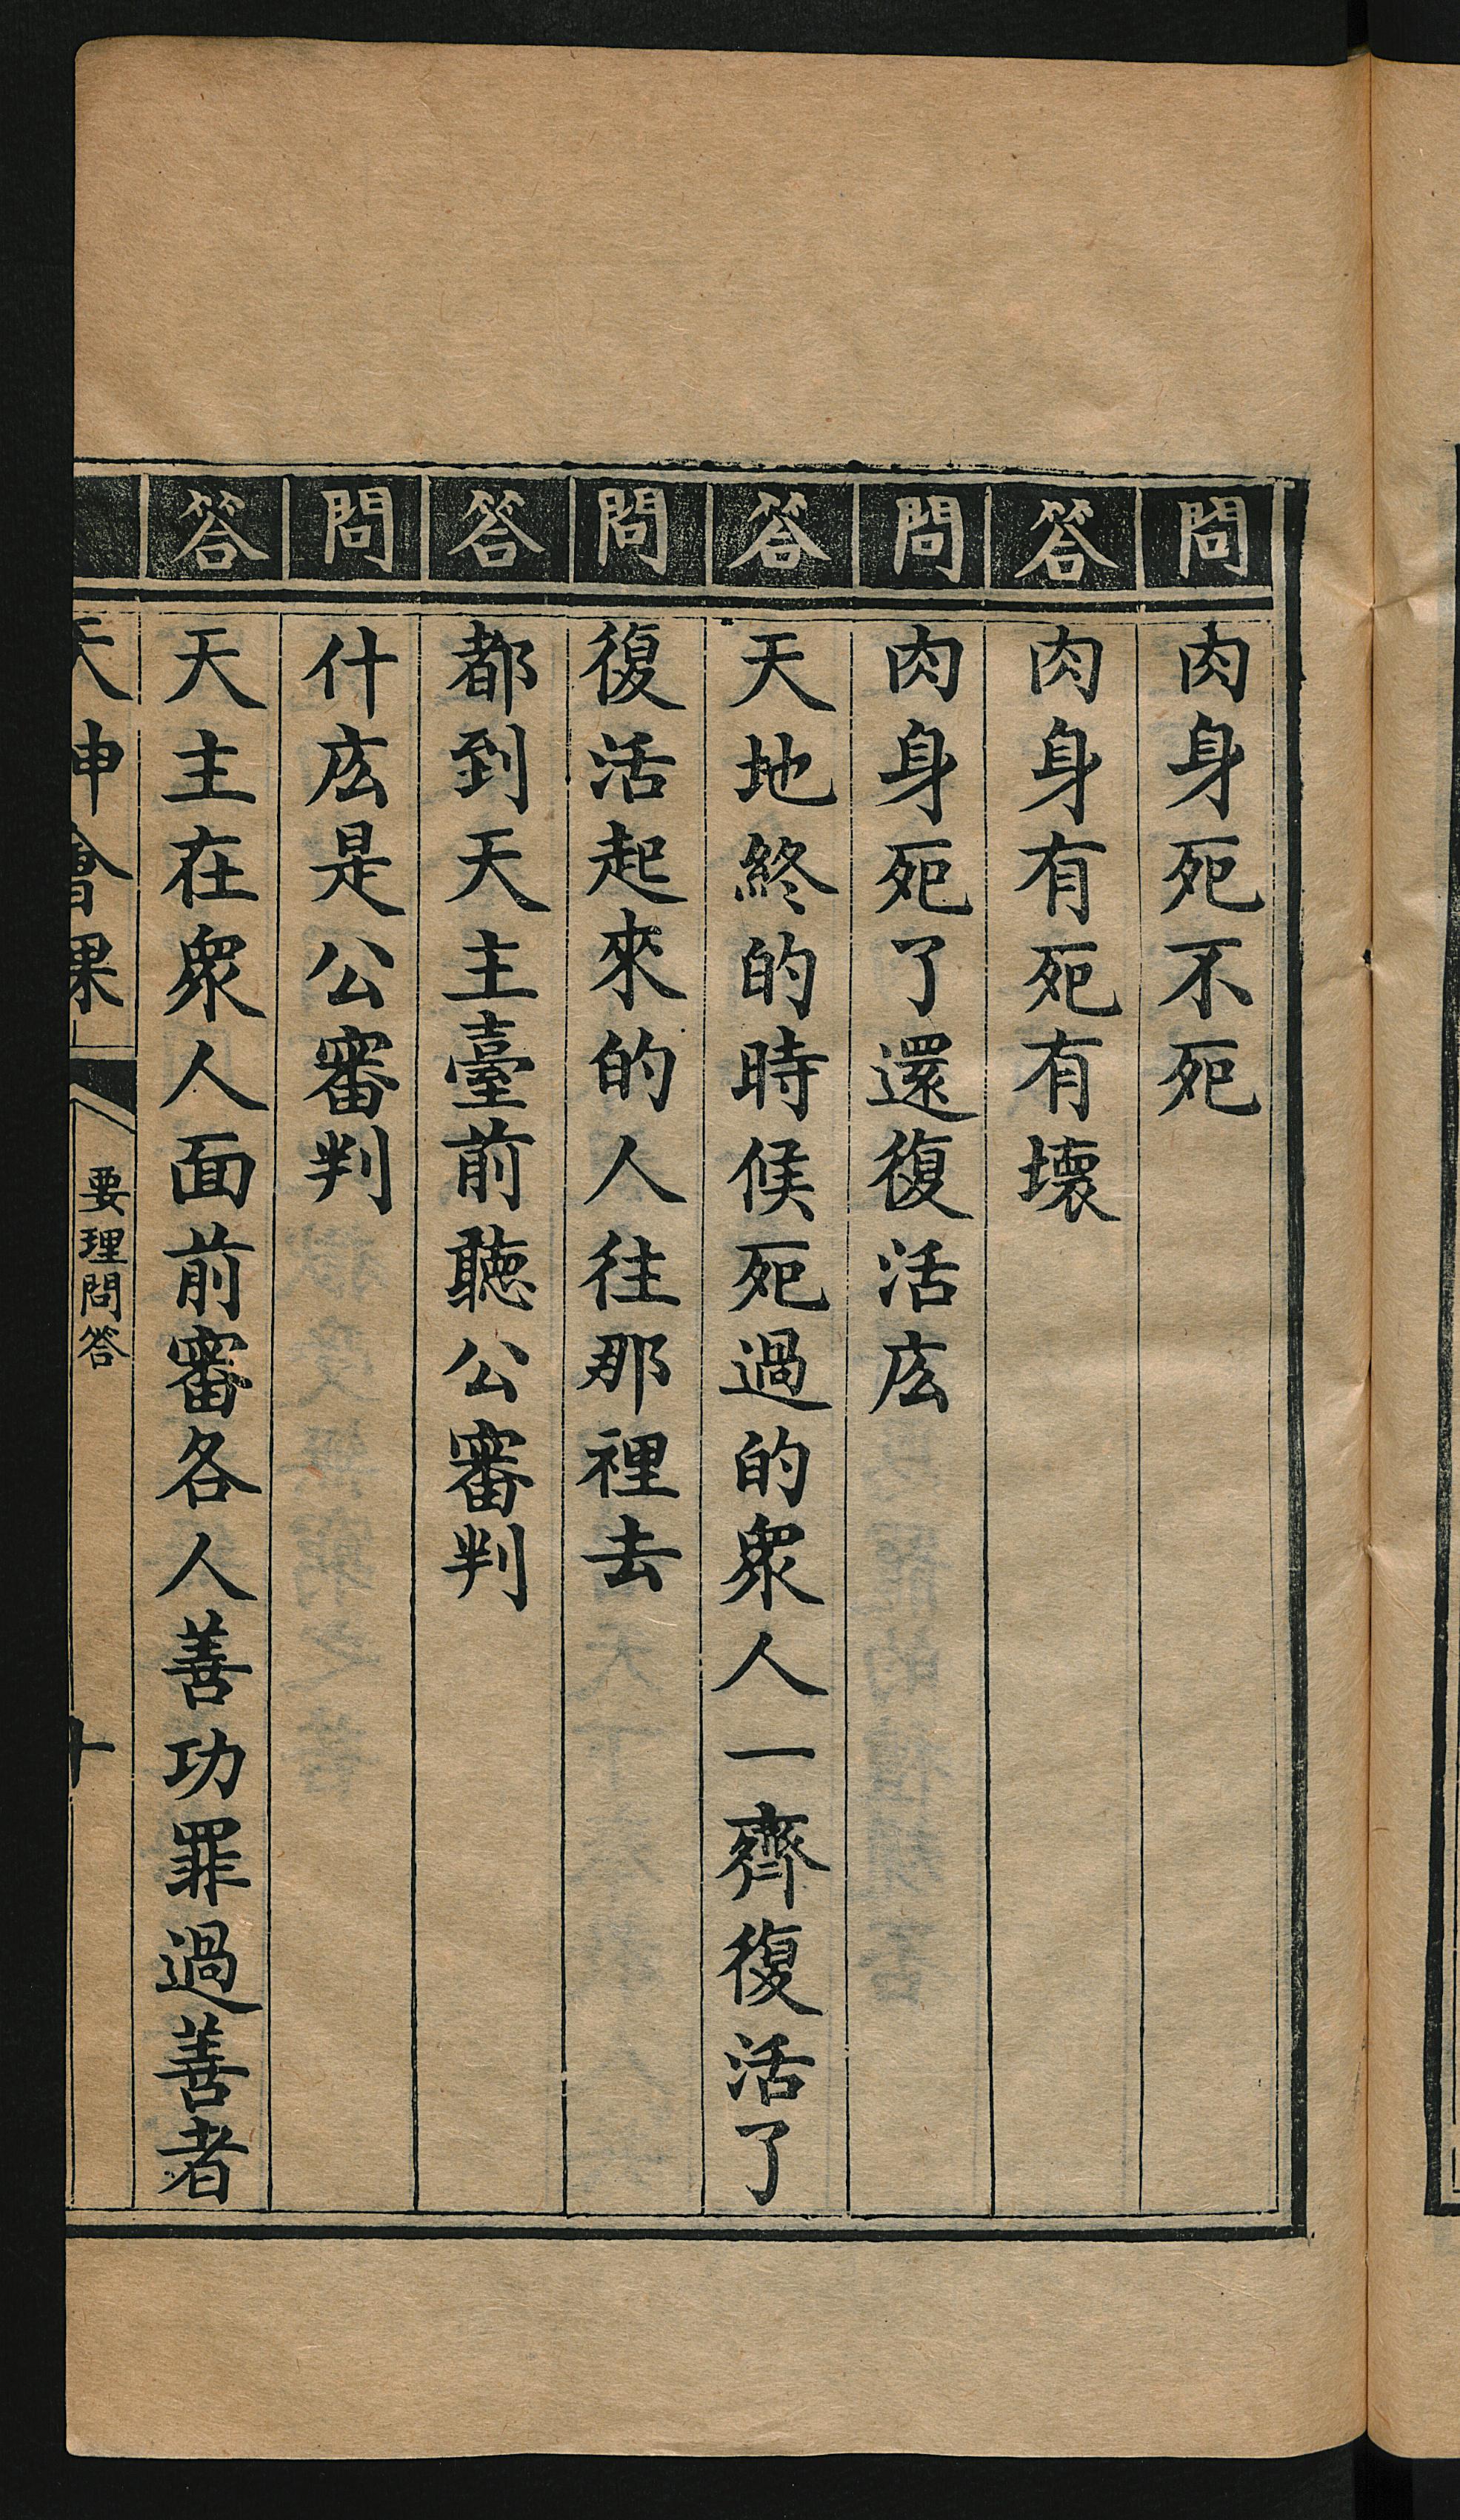 問 肉身死不死
答 肉身有死有壞
問 肉身死了還復活庅
答 天地終的時候死過的衆人一齊復活了
問 復活起來的人往那裡去
答 都到天主臺前聽公審判
問 什庅是公審判
答 天主在衆人面前審各人善功罪過善者
天神會課
要理問答
十